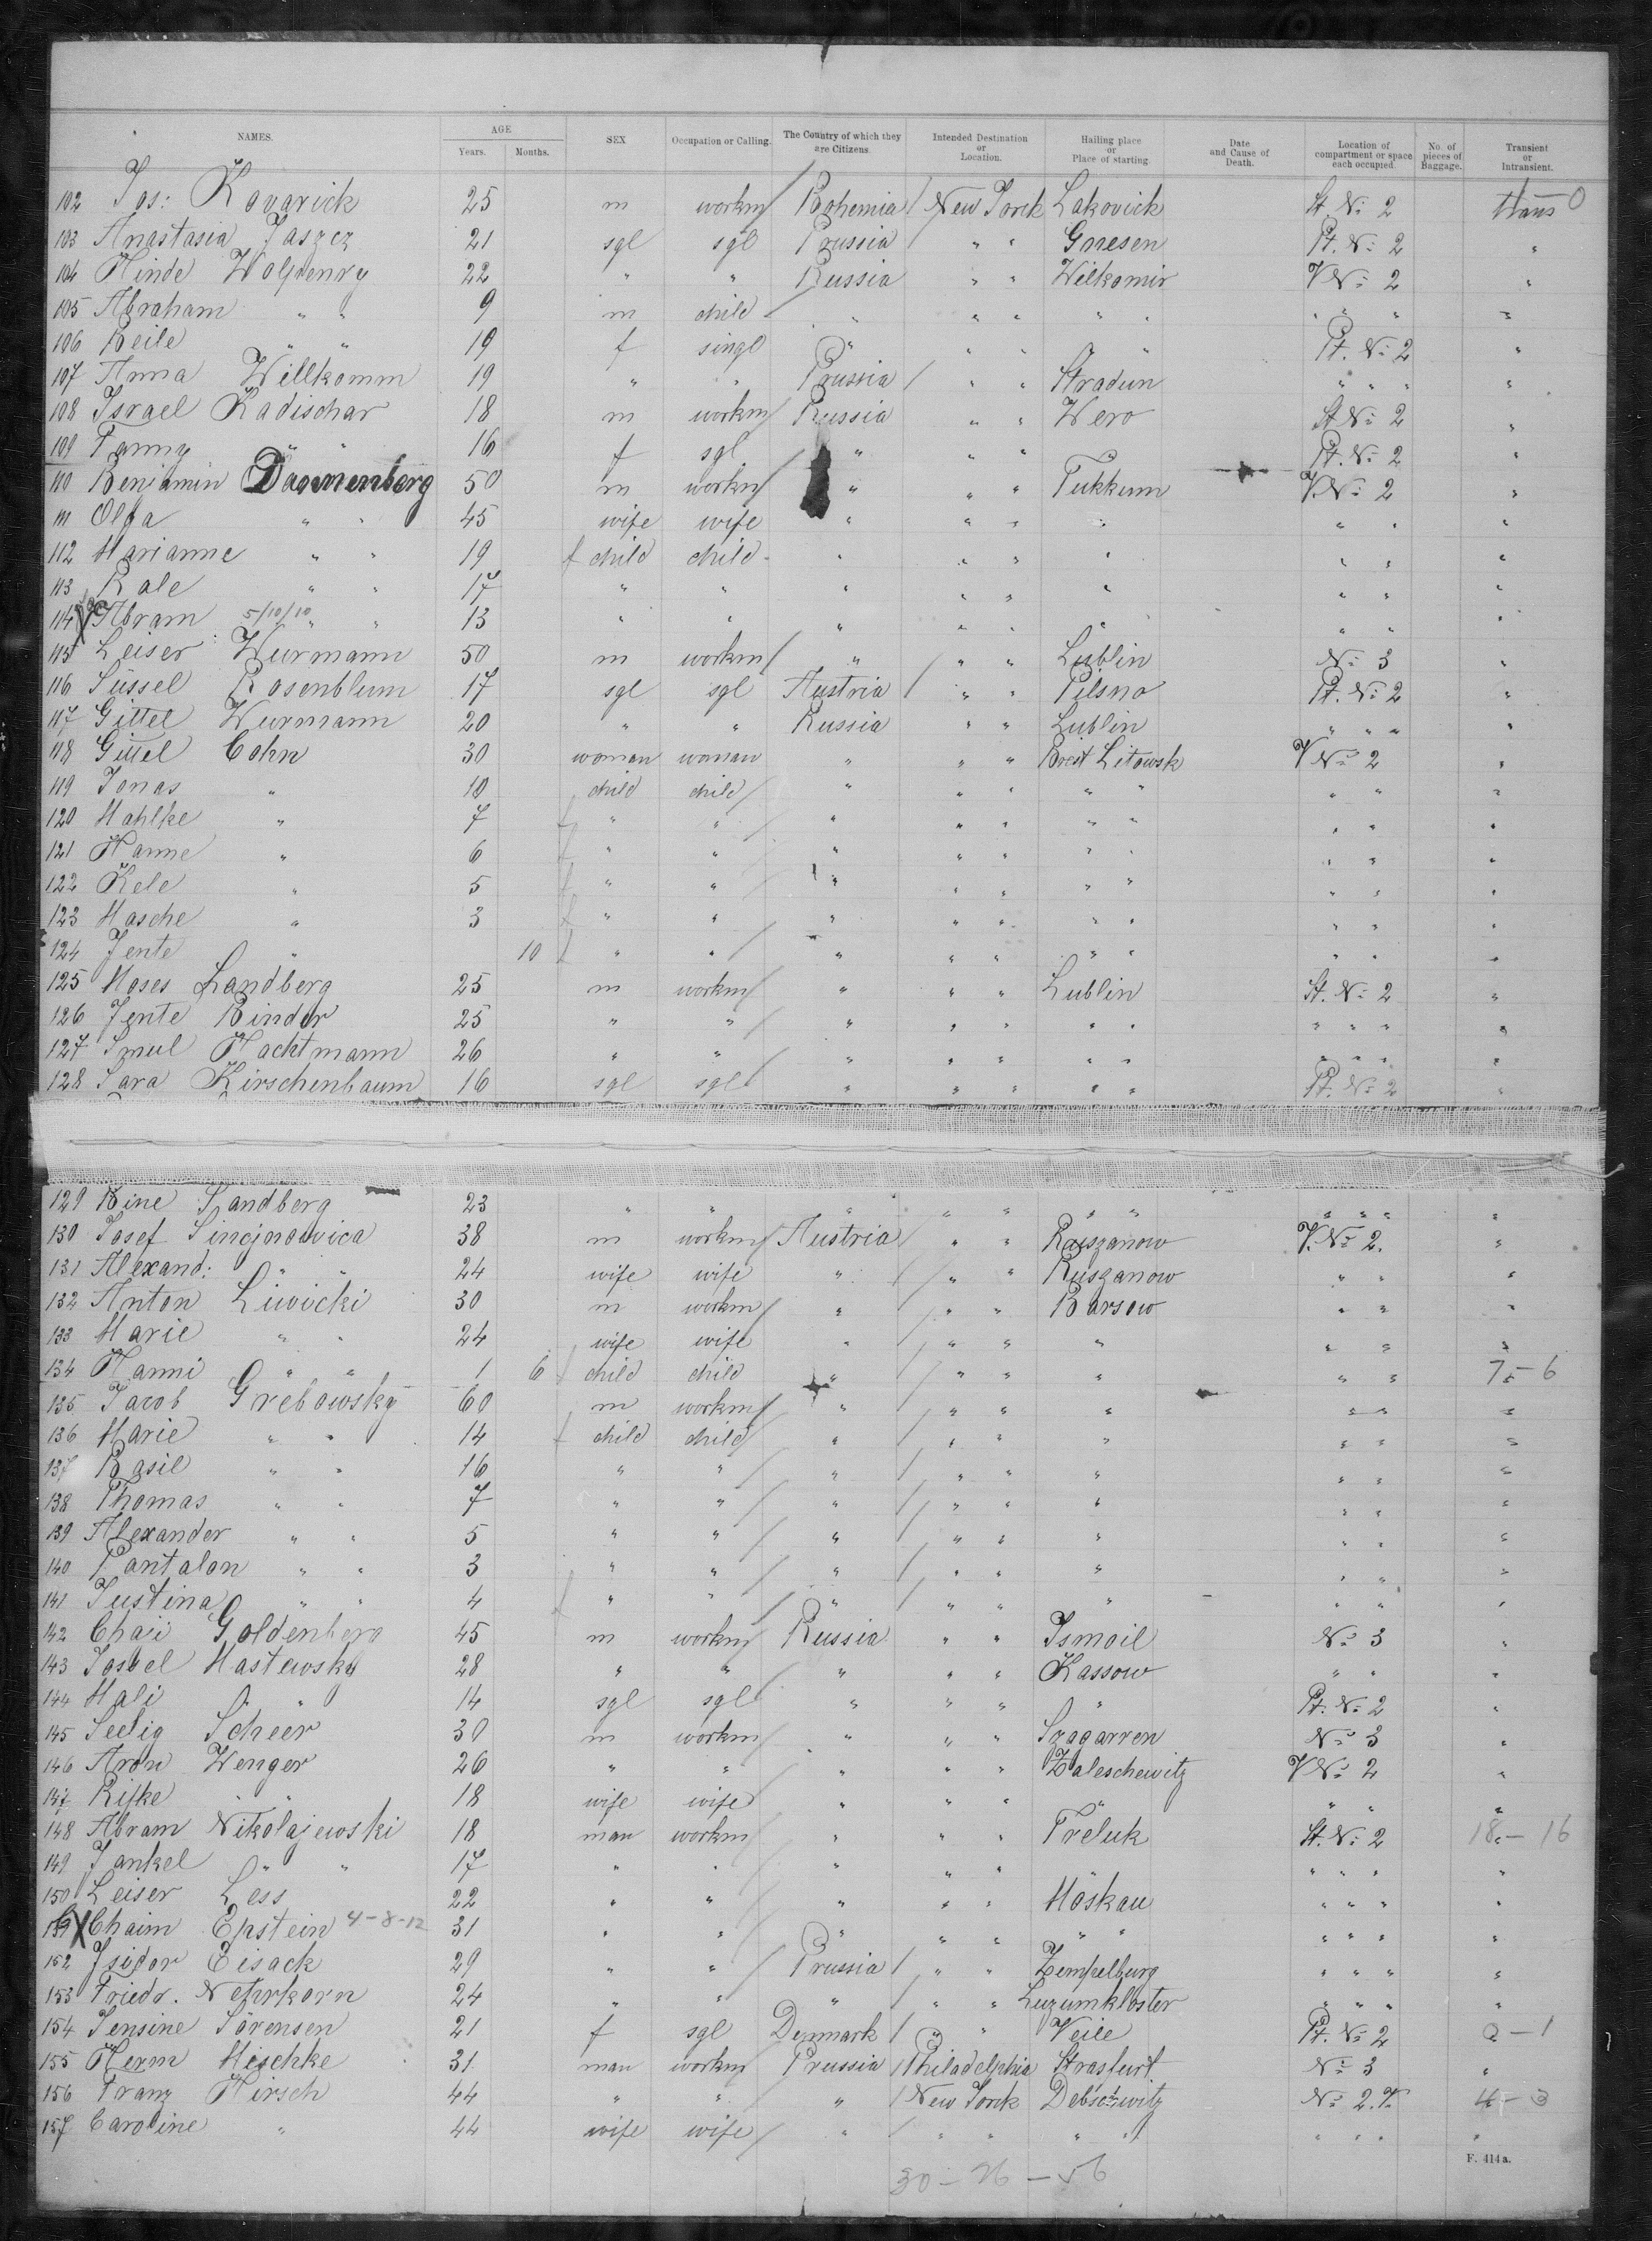 NAMES. AGE Years. Months. SEX Occupation or Calling. The Country of which they are Citizens. Intended Destination or Location. Hailing place or Place of starting. Date and Cause of Death. Location of compartment or space each occupied. No. of pieces of Baggage. Transient or Intransient.
102 Jos: Kovarick 25 m workm Bohemia New York Lakovick St. No 2 trans 0
103 Anastasia Jaszcz 21 sgl sgl Prussia " " Gnesen Pt. No 2 "
104 Hinde 22 " " Russia " " Wilkomir V No 2 "
105 Abraham " " 9 m child " " " " " " " "
106 Beile " " 19 f singl " " " " " Pt. No 2 "
107 Anna Willkomm 19 " " Prussia " " Stradun " " " "
108 Israel Kadischar 18 m workm Russia " " Wero St No 2 "
109 Fanny " " 16 f sgl " " " " Pt. No 2 "
110 Benjamin Dannenberg 50 m workm " " " Tukkum V. No 2 "
111 Olga " " 45 wife wife " " " " " " "
112 Marianne " " 19 f child child " " " " " " "
113 Rale " " 17 " " " " " " " " "
114 Abram 5/10/10 " " 13 " " " " " " " " "
115 Leiser Wurmann 50 m workm " " " Lublin No 3 "
116 Süssel Rosenblum 17 sgl sgl Austria " " Pilsno Pt. No 2 "
117 Gittel Wurmann 20 " " Russia " " Lublin " " " "
118 Gittel Cohn 30 woman woman " " " Brest Litowsk V No 2 "
119 Jonas " 10 child child " " " " " " " "
120 Mahlke " 7 f " " " " " " " " " "
121 Hanne " 6 f " " " " " " " " " "
122 Kele " 5 f " " " " " " " " " "
123 Masche " 3 f " " " " " " " " " "
124 Jente " 10 f " " " " " " " " " "
125 Moses Landberg 25 m workm " " " Lublin St. No 2 "
126 Jente Binder 25 " " " " " " " " " " "
127 Smul Nachtmann 26 " " " " " " " " " " "
128 Sara Kirschenbaum 16 sgl sgl " " " " " Pt. No 2 "
129 Rine Landberg 23 " " " " " " " " " " "
130 Josef 38 m workm Austria " " V. No 2. "
131 Alexand: " " 24 wife wife " " " Ruszanow " " "
132 Anton Liwicki 30 m workm " " " Barsow " " "
133 Marie " " 24 wife wife " " " " " " "
134 Nanni " " 1 6 f child child " " " " " " 7 - 6
135 Jacob Grebowsky 60 m workm " " " " " " "
136 Marie " " 14 f child child " " " " " " "
137 Basil " " 16 " " " " " " " " "
138 Thomas " " 7 " " " " " " " " "
139 Alexander " " 5 " " " " " " " " "
140 Pantalon " " 3 " " " " " " " " "
141 Justina " " 4 f " " " " " " " " "
142 Chaii Goldenberg 45 m workm Russia " " Ismail No 3 "
143 Josbel Mastewsky 28 " " " " " Kassow " " "
144 Mali " " 14 sgl sgl " " " " Pt. No 2 "
145 Seelig Scheer 30 m workm " " " Szagarren No 3 "
146 Aron Wenger 26 " " " " " Zaleschewitz V No 2 "
147 Rifke " " 18 wife wife " " " " " " "
148 Abram Nikolajewski 18 man workm " " " Treluk St. No 2 18 - 16
149 Jankel " " 17 " " " " " " " " "
150 Leiser Less 22 " " " " " Moskau " " " "
151 Chaim Epstein 4-8-12 31 " " " " " " " " " " "
152 Isidor Eisack 29 " " Prussia " " Zempelburg " " " "
153 Friedr. Nehrkorn 24 " " " " " Luzumkloster " " " "
154 Jensine Sörensen 21 f sgl Denmark " " Veile Pt. No 2 0 - 1
155 Herm Mischke 31 man workm Prussia Philadelphia Strasfurt No 3 "
156 Franz Hirsch 44 " " " New York Debschwitz No 2. V. 4 - 3
157 Caroline " 44 wife wife " " " " " " " " "
F. 414a.
30 - 26 - 56